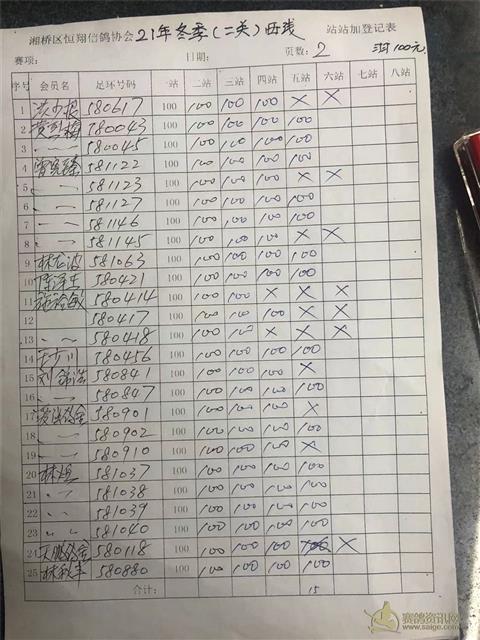 湘桥区恒翔信鸽协会21年冬季(二关)西线 站站加登记表
赛项: 日期: 页数: 2 100元
序号 会员名 足环号码 一站 二站 三站 四站 五站 六站 七站 八站
1 580617 100 100 100 100 × ×
2 780043 100 100 100 100 100
3 〃 〃 780045 100 100 100 100 100
4 581122 100 100 100 100 100
5 〃 〃 581123 100 100 100 100 × ×
6 〃 〃 581127 100 100 100 100 100
7 〃 〃 581146 100 100 100 100 100
8 〃 〃 581145 100 100 100 100 × ×
9 林友波 581063 100 100 100 100 100
10 580421 100 100 100 100 100
11 580414 100 100 100 × × ×
12 580417 100 100 100 100 × ×
13 〃 〃 580418 100 100 100 × × ×
14 780456 100 100 100 100 100
15 580841 100 100 100 100 ×
16 〃 〃 580847 100 100 100 100 100
17 580901 100 100 100 100 ×
18 〃 〃 580902 100 100 100 100 100
19 〃 〃 580910 100 100 100 100 ×
20 581037 100 100 100 100 100
21 〃 〃 581038 100 100 100 100 100
22 〃 〃 581039 100 100 100 100 100
23 〃 〃 581040 100 100 100 100 100
24 580118 100 100 100 100 ×
25 林秋丰 580880 100 100 100 100 100
合计: 15
赛鸽资讯网
www.saige.com